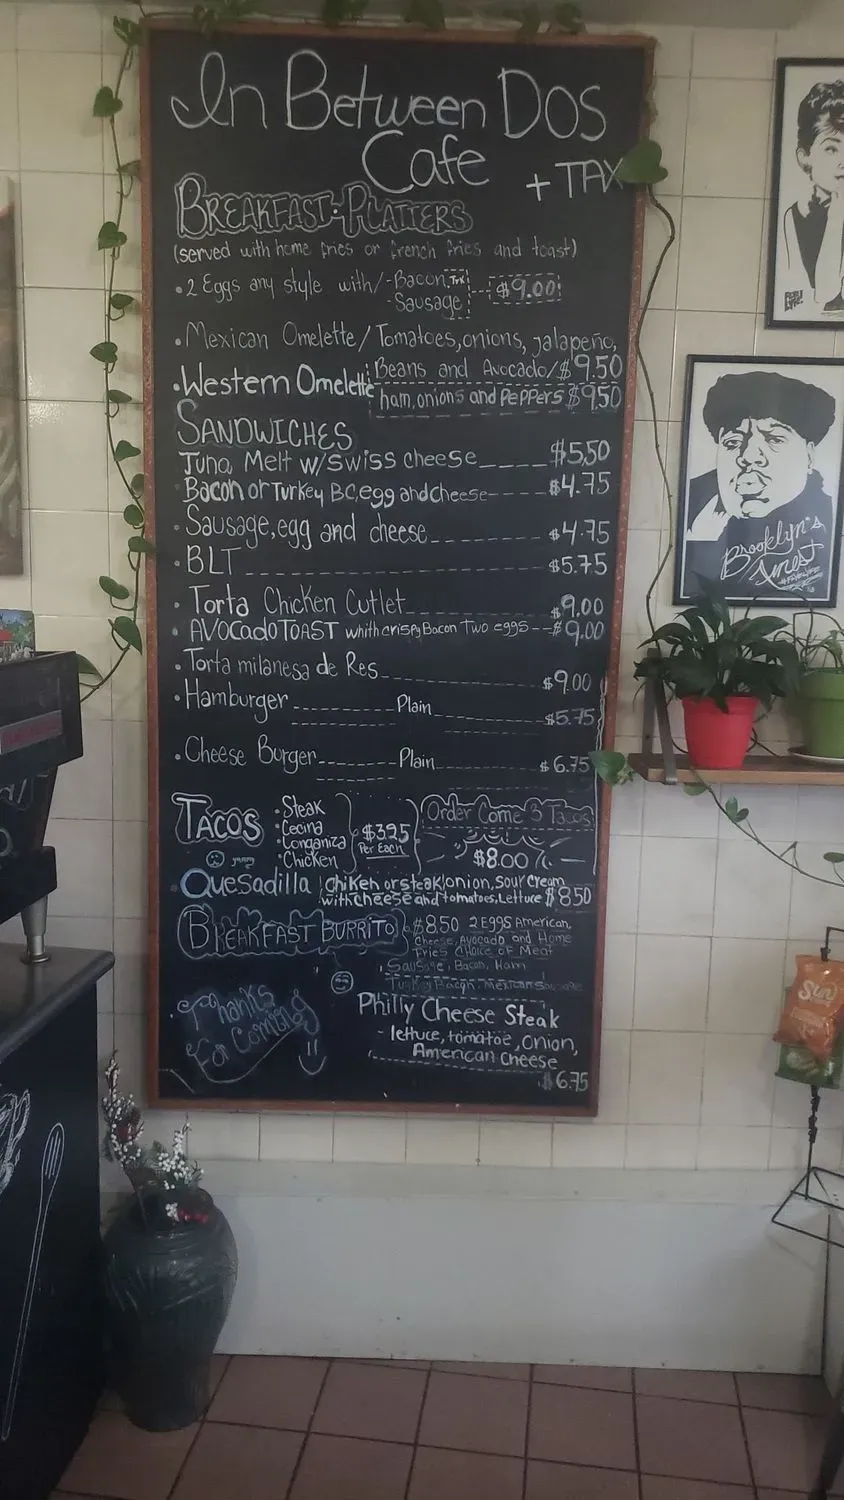 In Between Dos
Cafe
+ TAX
BREAKFAST: PLATTERS
(served with home fries or french fries and toast)
• 2 Eggs any style with/ - Bacon, Trk
- Sausage, $9.00
• Mexican Omelette / Tomatoes, onions, jalapeño,
Beans and Avocado/$9.50
• Western Omelette ham, onions and Peppers $9.50
SANDWICHES
Tuna Melt w/swiss cheese $5.50
Bacon or Turkey BC, egg and cheese $4.75
• Sausage, egg and cheese $4.75
• BLT $5.75
• Torta Chicken Cutlet $9.00
• AVOCADO TOAST whith crispy Bacon Two eggs $9.00
• Torta milanesa de Res $9.00
• Hamburger Plain $5.75
• Cheese Burger Plain $6.75
TACOS
• Steak
• Cecina
• Longaniza
• Chicken
yummy
$3.25
Per Each
Order Come 3 Tacos
$8.00
Quesadilla chiken or steak, onion, sour cream
with cheese and tomatoes, Lettuce $8.50
BREAKFAST BURRITO $8.50 2 EGGS American,
Cheese, Avocado and Home
Fries choice of Meat
Sausage, Bacon, Ham
Turkey Bacon, Mexican Sausage
Thanks
For Coming
Philly Cheese Steak
- lettuce, tomatoe, onion,
American cheese
$6.75
Brooklyn's
Finest
Sun